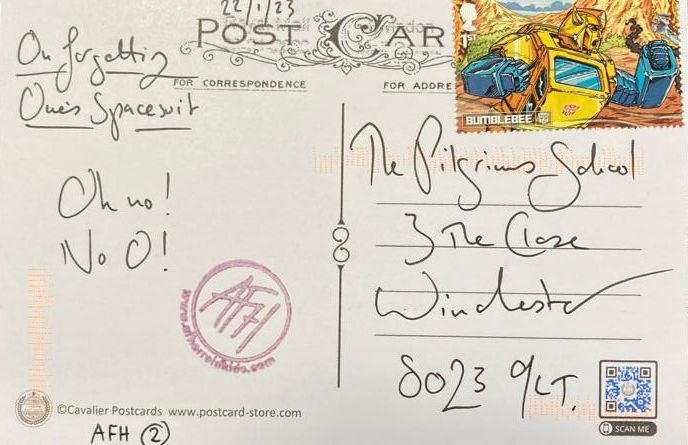 22/1/23
POST CAR
1ST
BUMBLEBEE
FOR CORRESPONDENCE
FOR ADDRE
On forgetting
One's Spacesuit
Oh no!
No O!
The Pilgrims School
3 The Close
Winchester
SO23 9LT.
AFH
©Cavalier Postcards www.postcard-store.com
SCAN ME
AFH (2)